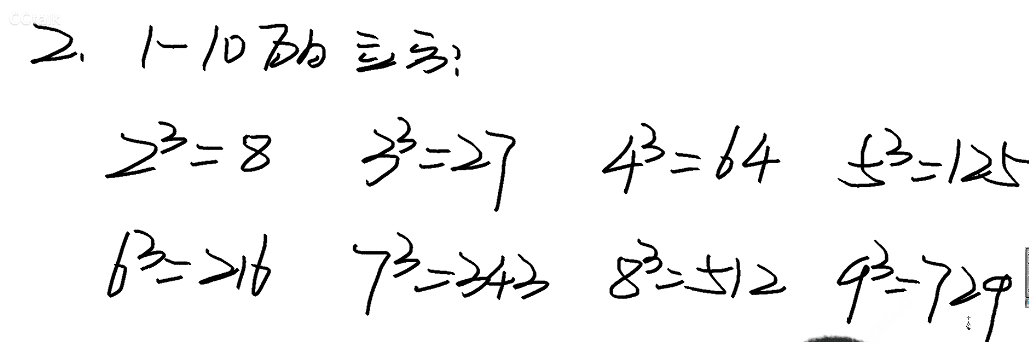 2. 1-10的立方:
2³=8 3³=27 4³=64 5³=125
6³=216 7³=343 8³=512 9³=729